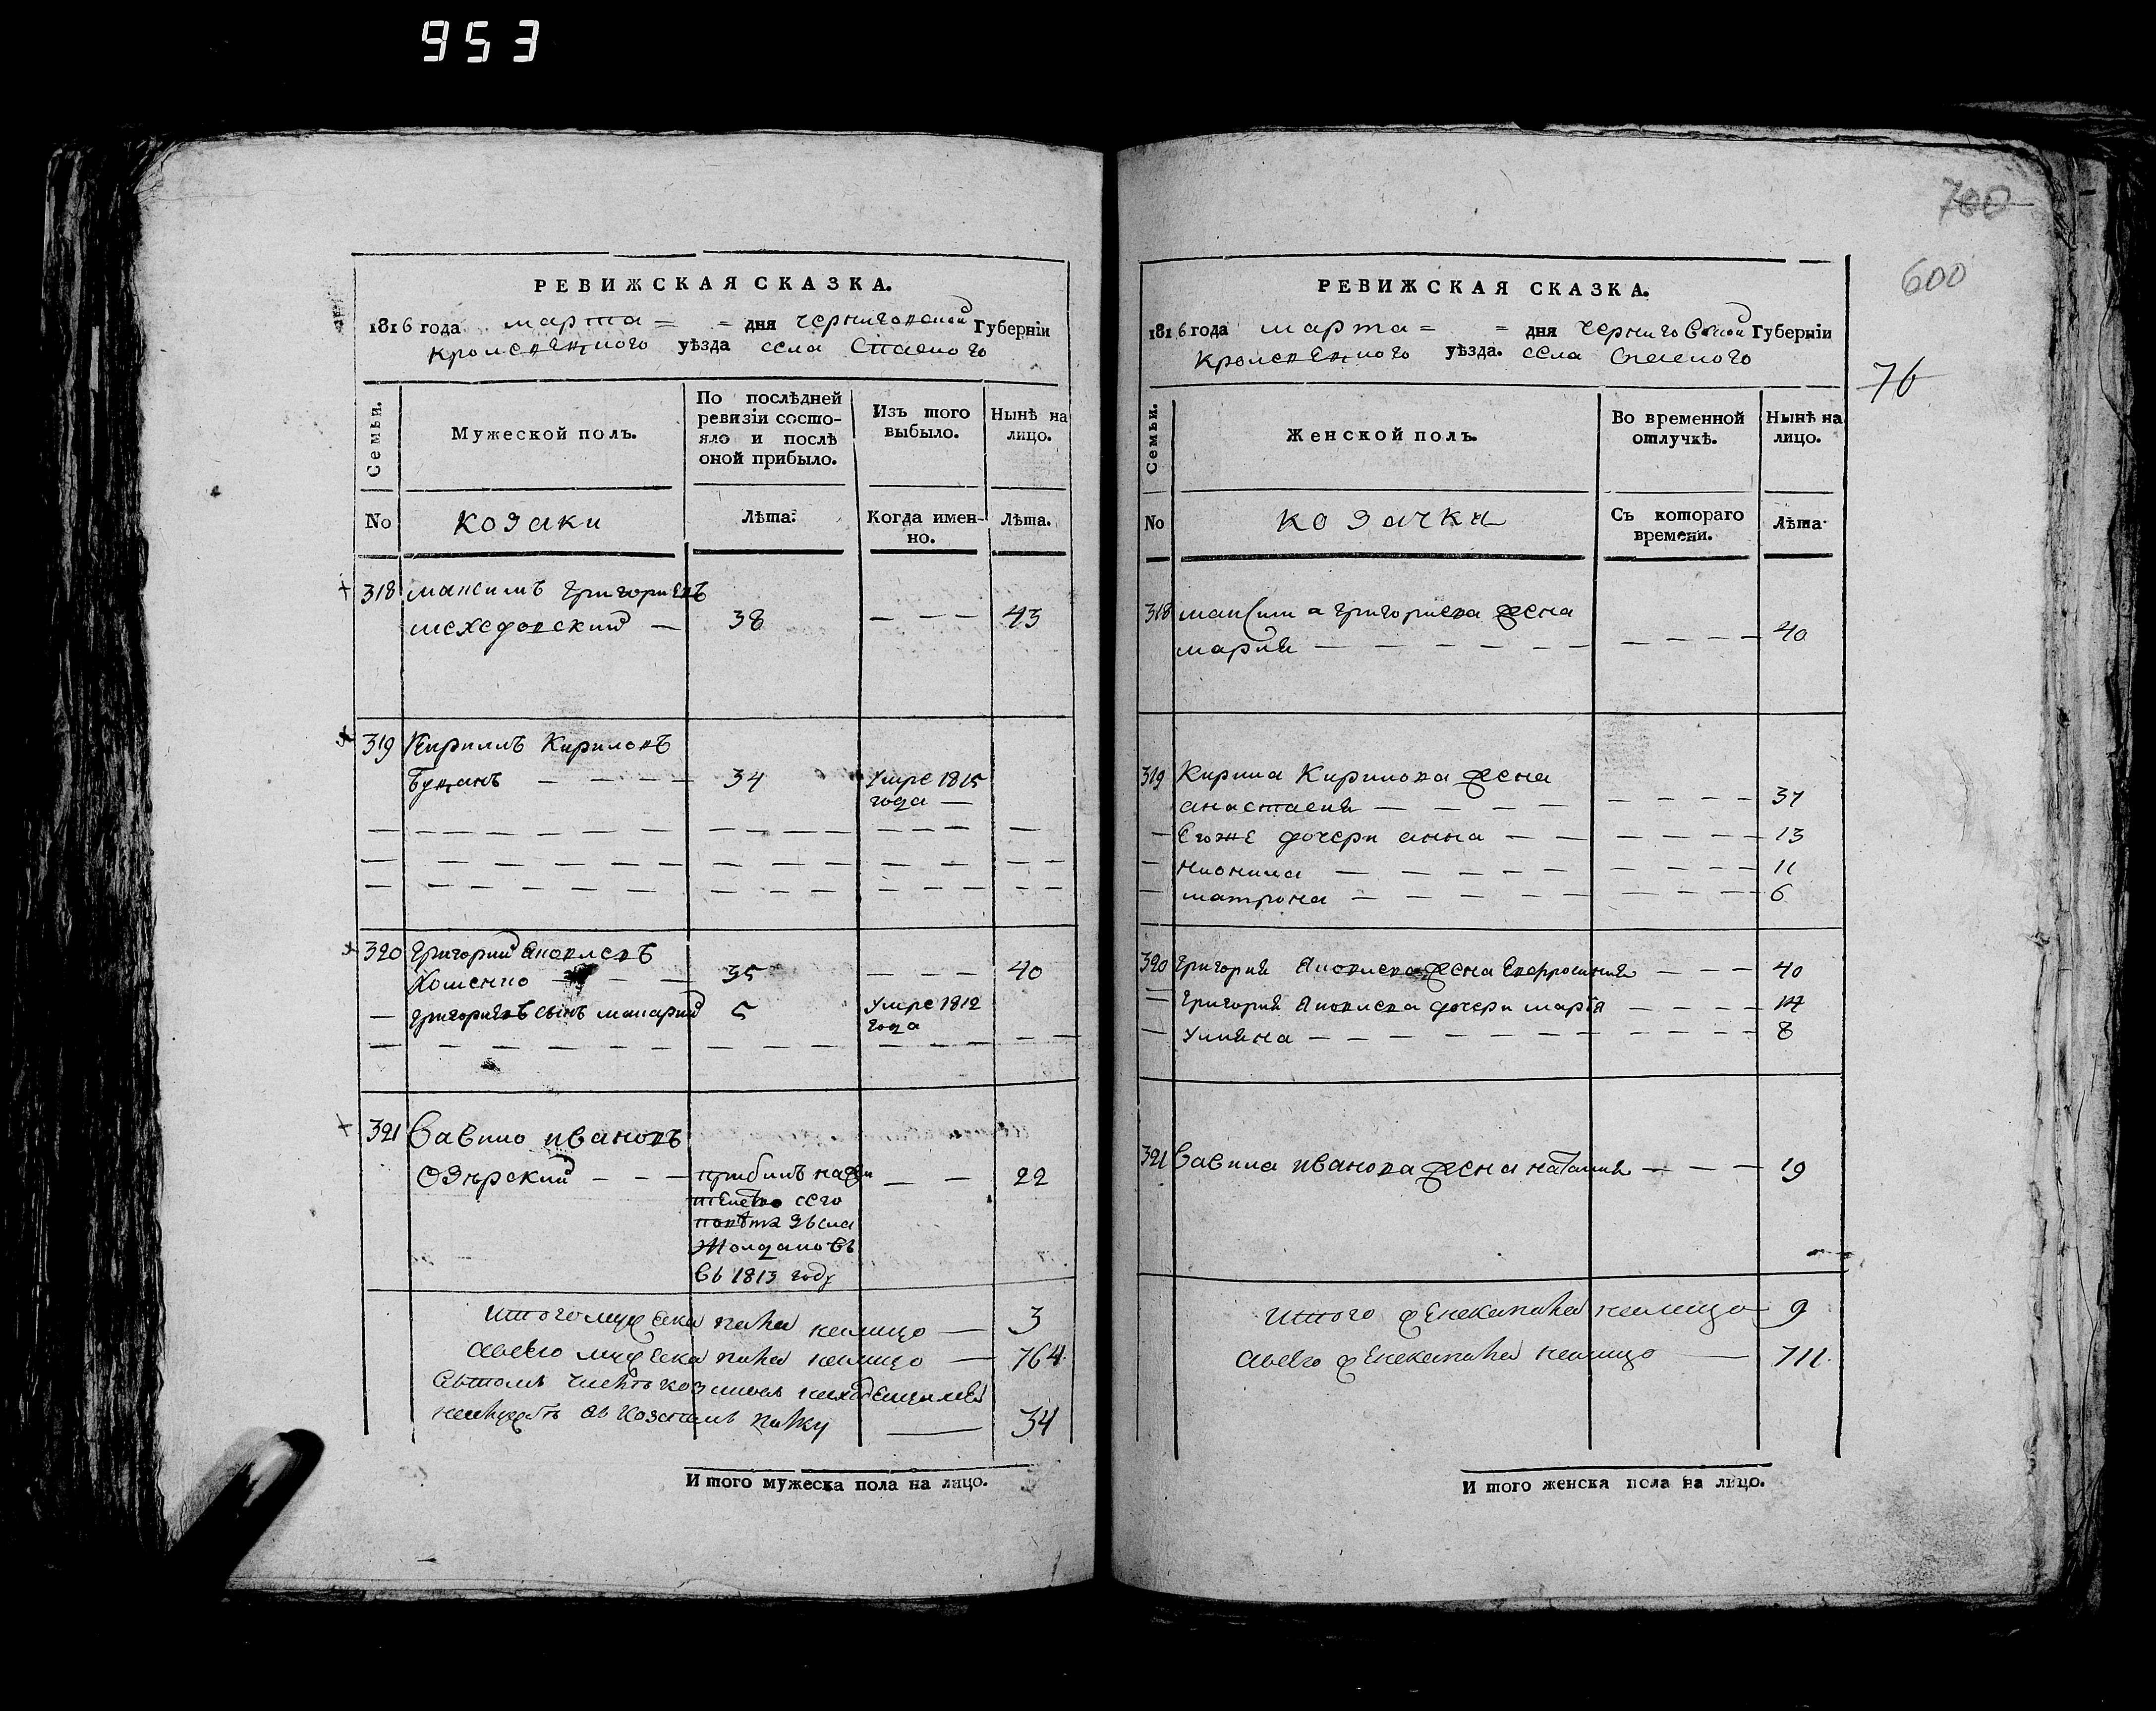 953
РЕВИЖСКАЯ СКАЗКА.
1816 года марта = = дня черниговской Губерніи
кролевецкого уѣзда села Спаского
Семьи.
Мужеской полъ.
По послѣдней ревизіи состояло и послѣ оной прибыло.
Изъ того выбыло.
Нынѣ на лицо.
No козаки Лѣта. Когда именно. Лѣта.
318 максимъ григориевъ
38 — — — 43
319 Кирилъ Кириловъ
34 умре 1815
года —
320 Григорий
Хоменко — — 35 — — — 40
— григориевъ сынъ макарий 5 умре 1812
года
321 Савило ивановъ
Озѣрский — — — 22
сего
въ 1813 году
Итого мужеска пола налицо — 3
авсего мужеска пола налицо — 764
34
И того мужеска пола на лицо.
700
600
76
РЕВИЖСКАЯ СКАЗКА.
1816 года марта = = дня черниговской Губерніи
кролевецкого уѣзда. села Спаского
Семьи.
Женской полъ.
Во временной отлучкѣ.
Нынѣ на лицо.
No козачки Съ котораго времени. Лѣта.
318 максима григориева жена
мария — — — — — — — — — — 40
319 Кирила Кирилова жена
анастасия — — — — — — — — 37
— Егоже дочери анна — — — — — — 13
— — — — — — — — — — 11
— матрона — — — — — — — — — 6
320 григория жена Евфросиния — — — 40
— григория дочери мария — — — — 14
— улияна — — — — — — — — — — 8
321 Савила иванова жена наталия — — — 19
Итого женска пола налицо 9
авсего женска пола налицо — 711.
И того женска пола на лицо.